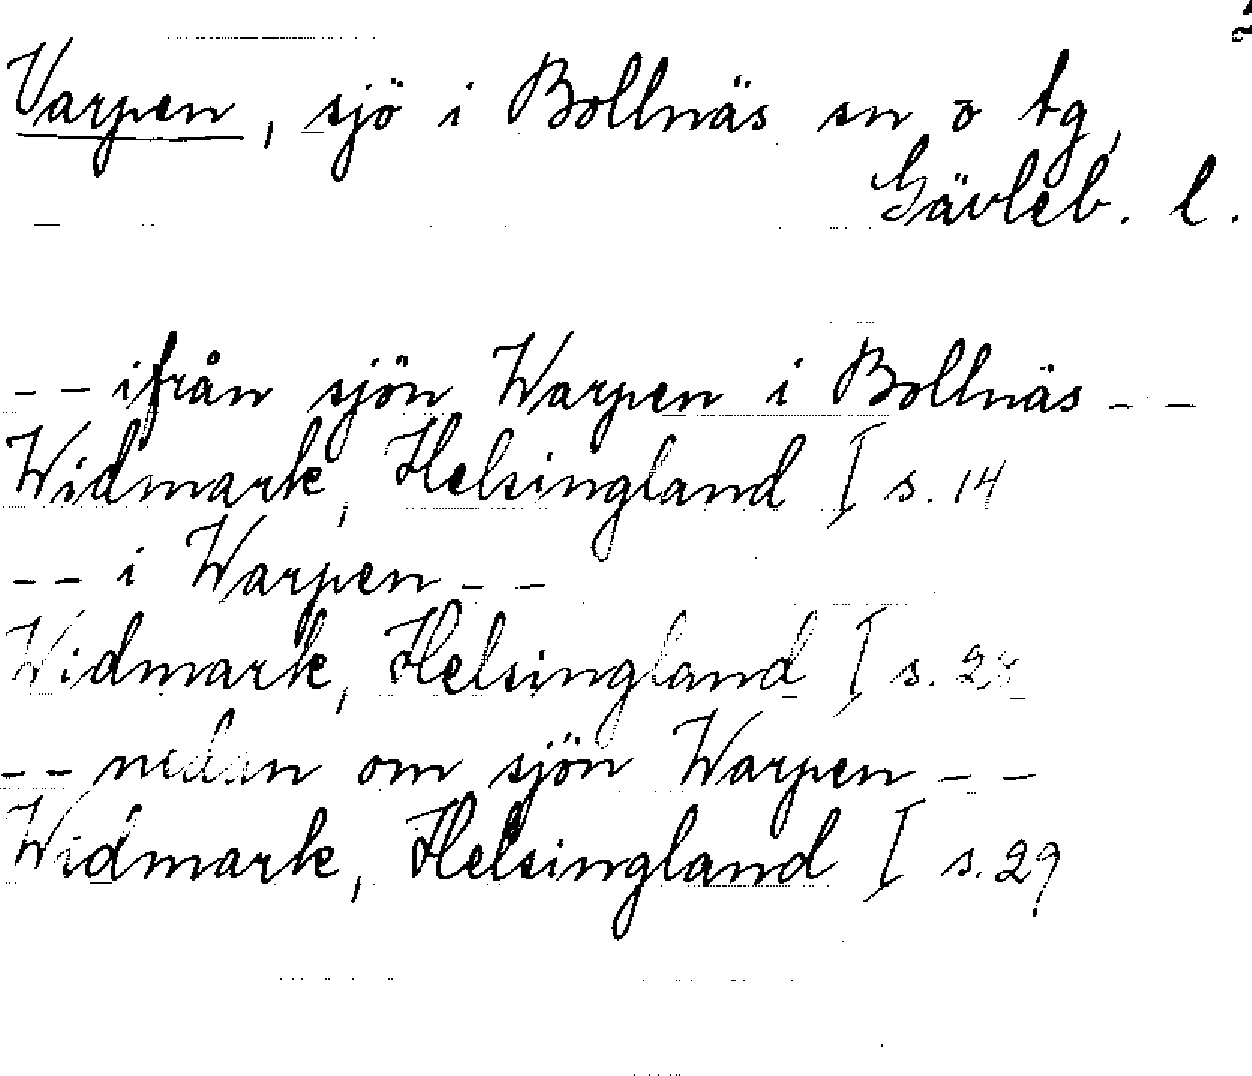 Varpen, sjö i Bollnäs sn o tg,
Gävleb. l.
-- ifrån sjön Warpen i Bollnäs --
Widmark, Helsingland I s. 14
-- i Warpen --
Widmark, Helsingland I s.
-- nedan om sjön Warpen --
Widmark, Helsingland I s. 29